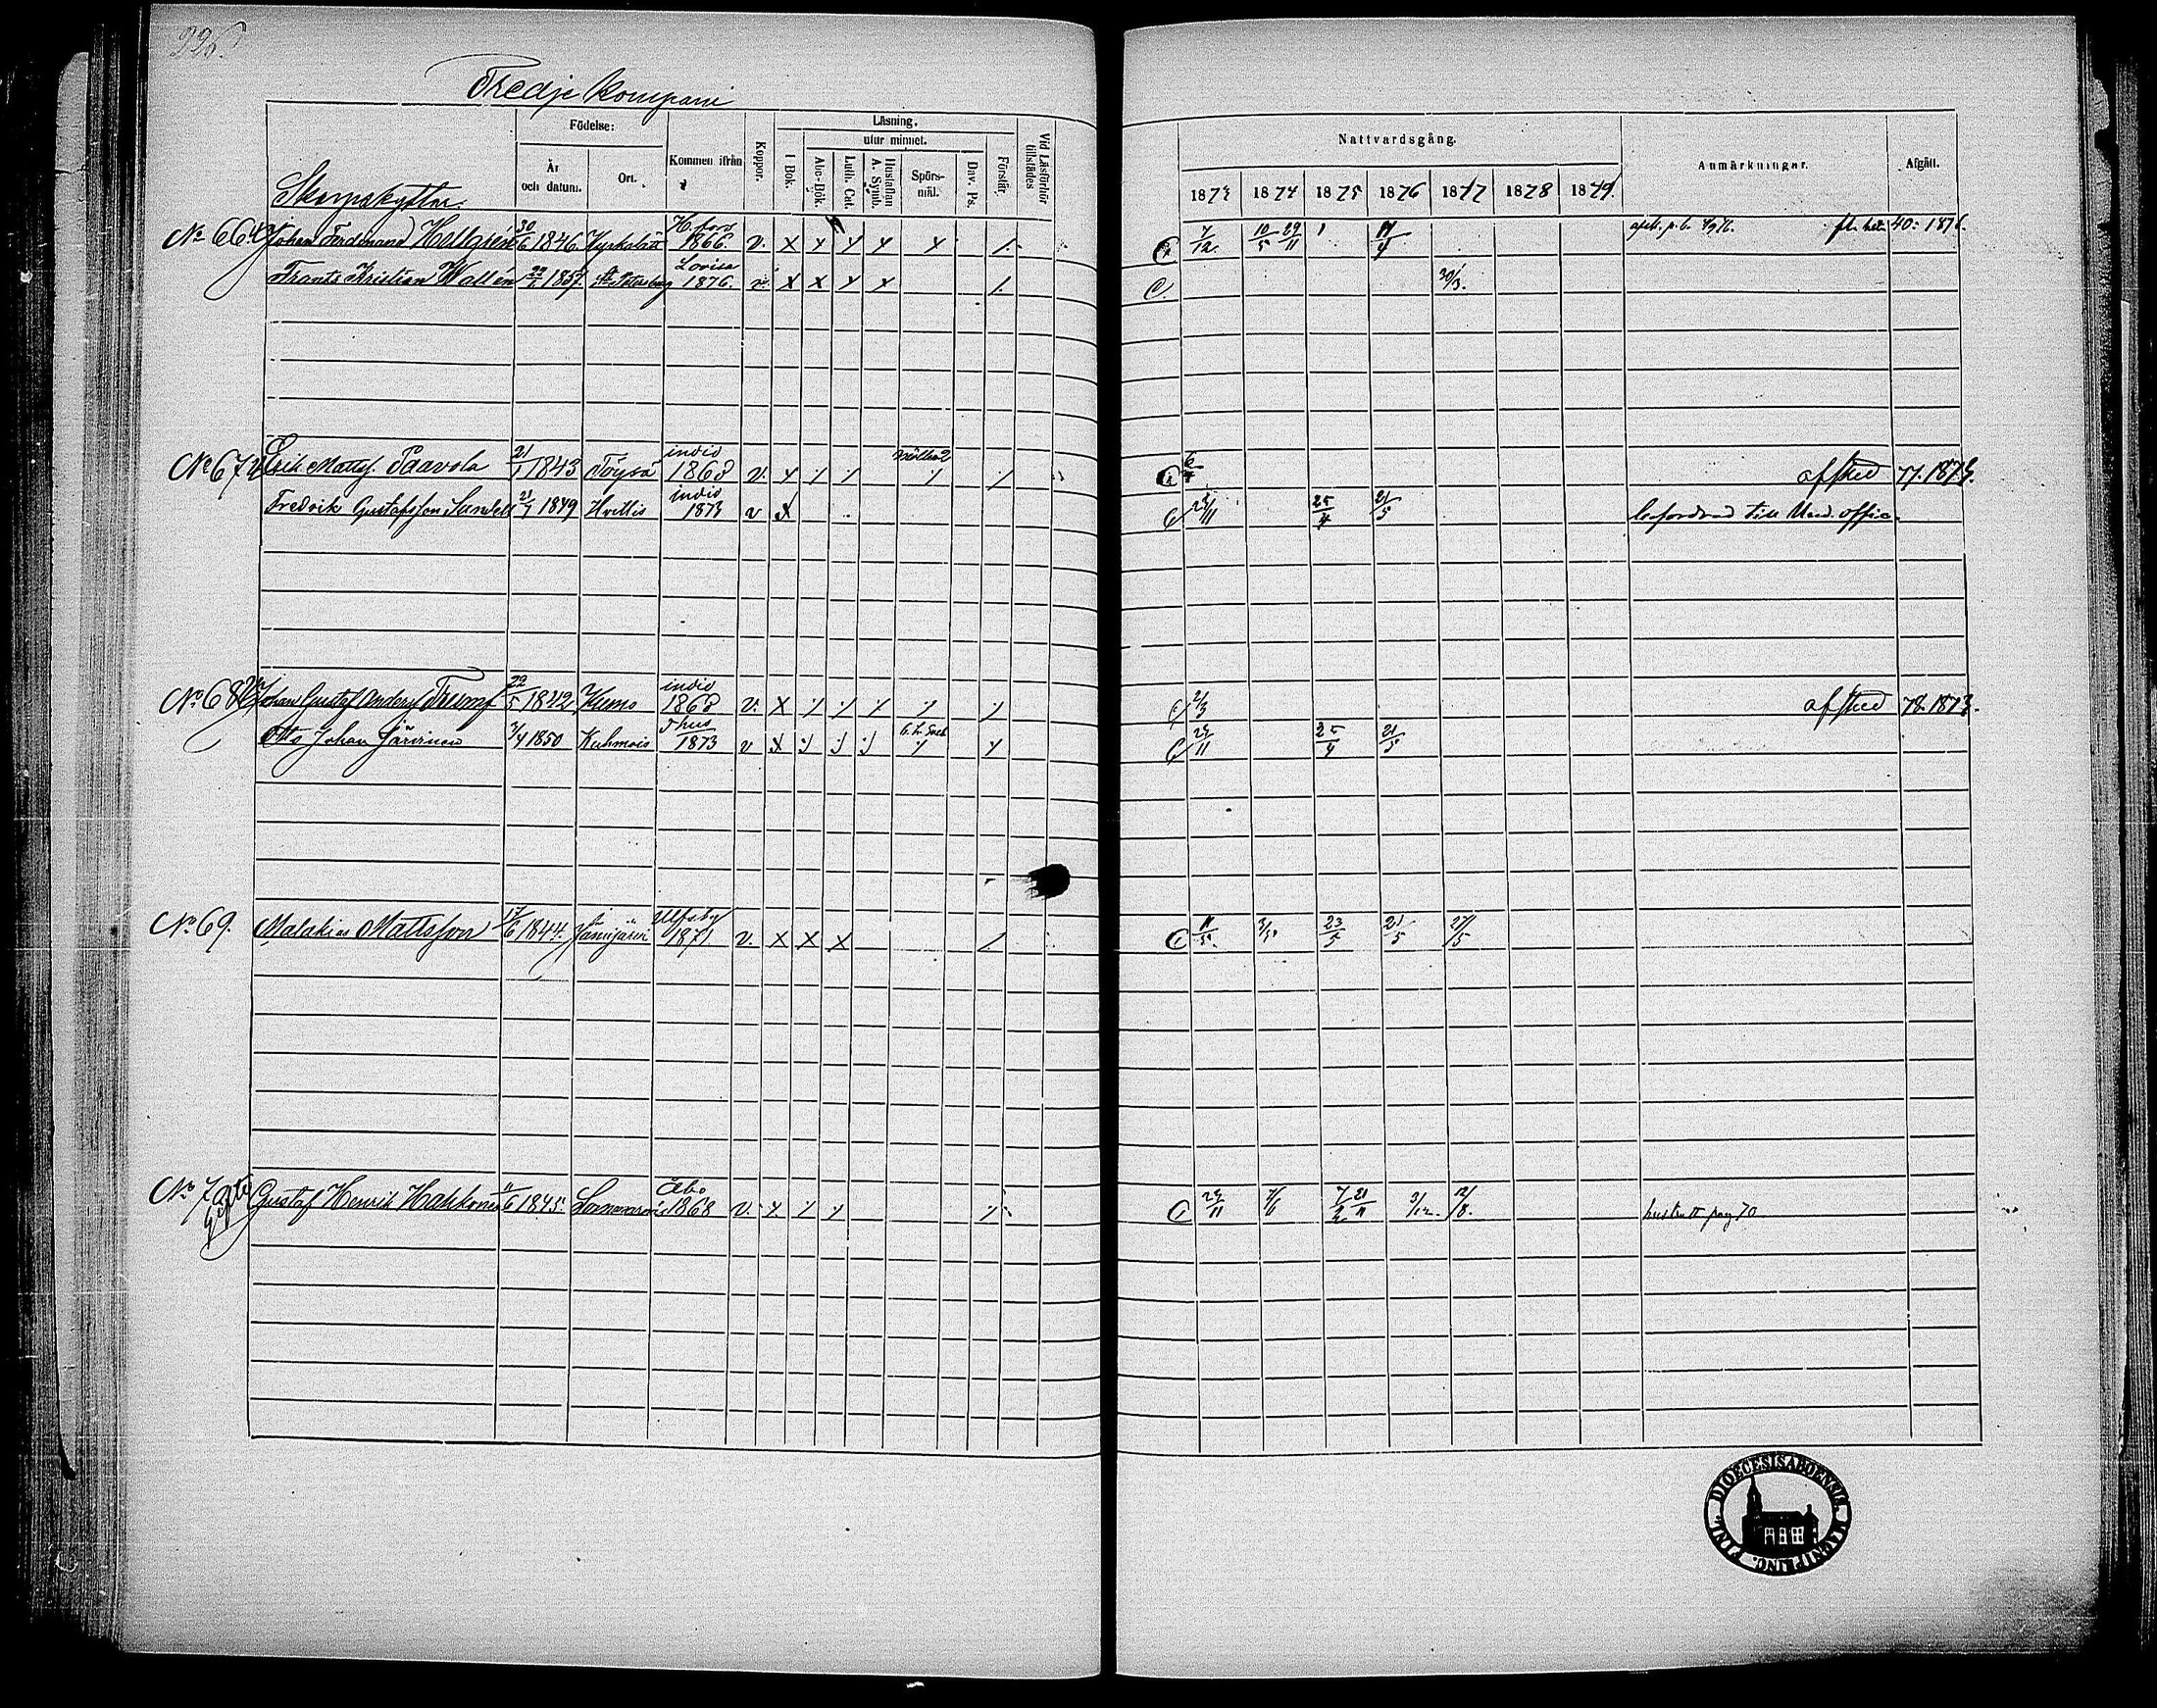 226.
Tredje Kompani
Födelse:
Läsning.
utur minnet.
År och datum.
Ort.
Kommen ifrån
Koppor.
I Bok.
Abc-Bok.
Luth. Cat.
Hustaflan A. Symb.
Spörs-mål.
Dav. Ps.
Förstår.
Vid Läsförhör tillstädes
Nattvardsgång.
Anmärkningar.
Afgått.
1873 1874 1875 1876 1877 1878 1879
Skarpskyttar.
No 66 Johan Ferdinand Hellgrén 30/6 1846 Kyrkslätt H.fors 1866. v. 7/12 10/5 29/11 40: 1876.
Frants Kristian Wallén 1857 St Petersburg Lovisa 1876. 30/3.
No 67 Erik Mattsf. Paavola 21/1 1843 Töysä indio 1868 v. afsked 77. 1873.
Fredrik Gustafsson Sandell 21/7 1849 Hvittis indio 1873 v 23/11 25/4 21/5 befordrad till Und. offic.
No 68 Johan Gustaf Andersf Trumf 22/5 1842 Kumo indio 1868 v. 2/3 afsked 78. 1873.
Otto Johan Järvinen 3/4 1850 Kuhmois 1873 v 23/11 25/4 21/5
No 69. Malakias Mattsson 17/6 1844. Jämijärvi Ulfsby 1871 v. 23/5 21/5 27/5
No 70 Gift Gustaf Henrik Hakkonen 11/6 1845. Åbo 1868 v. 23/11 7/2 21/11 3/12. 12/8. hustru pag 70
DIOECESIS ABOENSIS MAGNI PRINC. FINL.